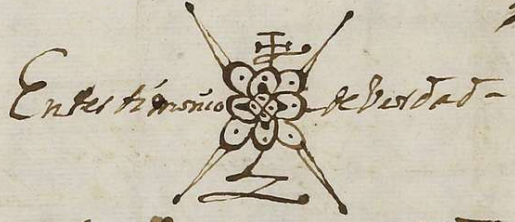 En testimonio de Verdad